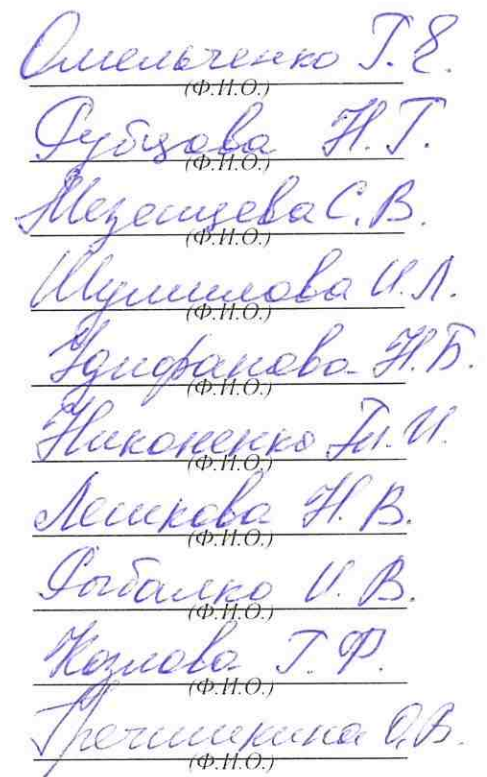 Омельченко Г.Е.
(Ф.И.О.)
Рубцова Н.Г.
(Ф.И.О.)
Мезенцева С.В.
(Ф.И.О.)
Шумилова И.Л.
(Ф.И.О.)
Н.Б.
(Ф.И.О.)
Никоненко И.
(Ф.И.О.)
Лешкова Н.В.
(Ф.И.О.)
Рыбалко И.В.
(Ф.И.О.)
Козлова Г.Ф.
(Ф.И.О.)
Гречишкина О.В.
(Ф.И.О.)